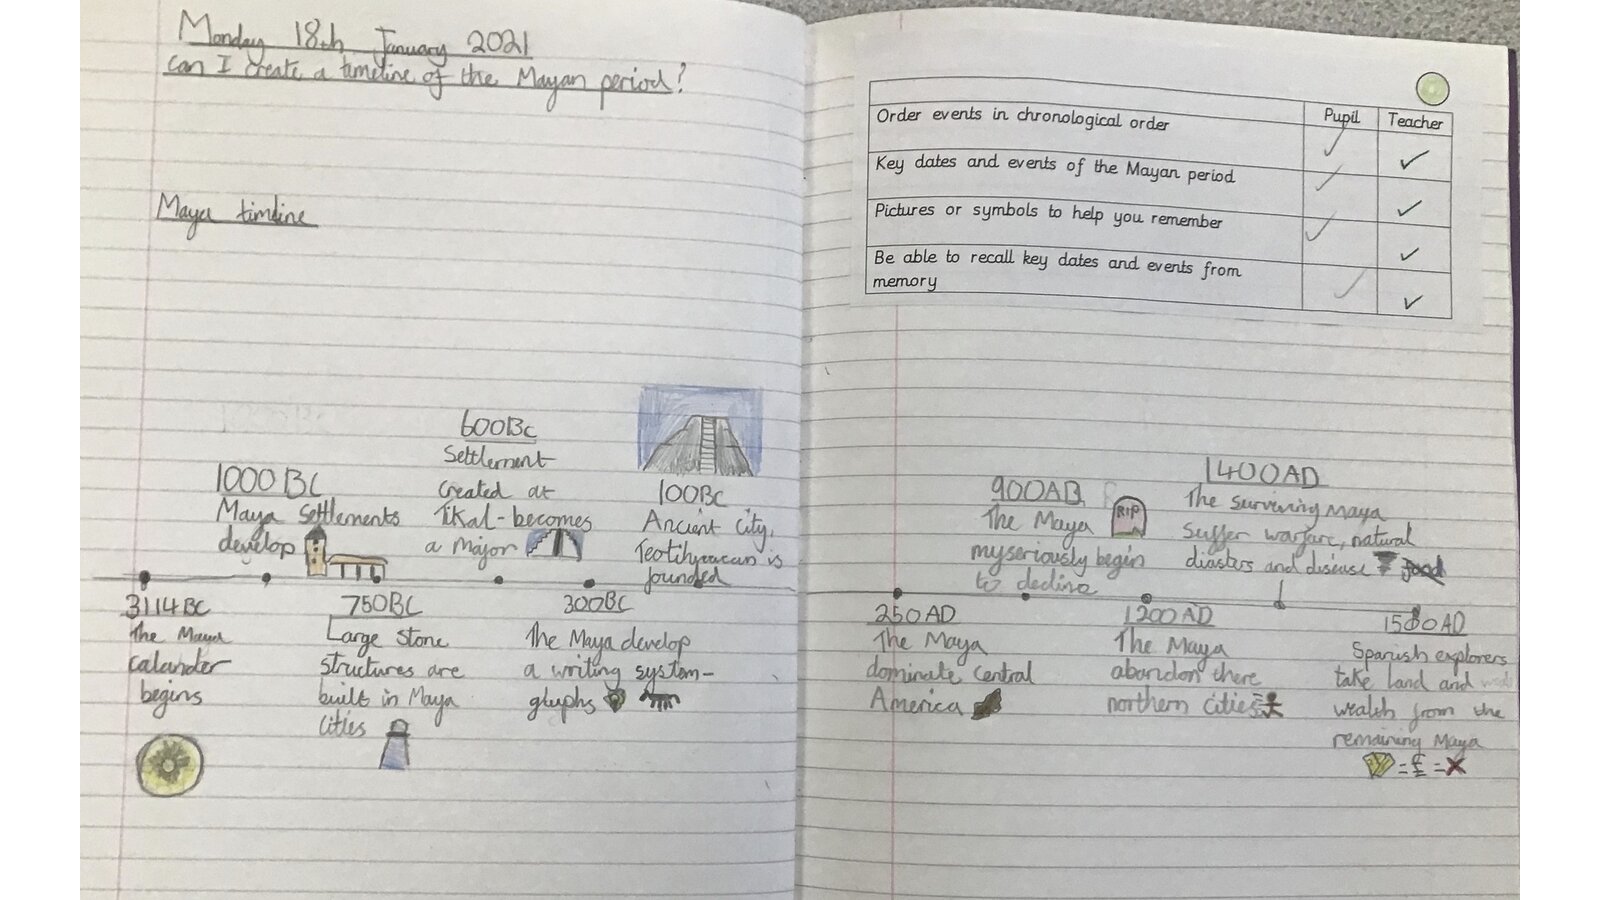 Monday 18th January 2021
can I create a timeline of the Mayan period?
Maya timline
1000BC
Maya Settlements
develop
600BC
Settlement
created at
Tikal-becomes
a Major
100BC
Ancient City,
is
founded
3114BC
The Maya
calander
begins
750BC
Large Stone
structures are
built in Maya
cities
300BC
The Maya develop
a writing system-
glyphs
Pupil
Teacher
Order events in chronological order
Key dates and events of the Mayan period
Pictures or symbols to help you remember
Be able to recall key dates and events from
memory
900AD
The Maya
myseriously begin
to decline
RIP
1400AD
The surviving Maya
suffer warfare, natural
diasters and disiease
250AD
The Maya
dominate Central
America
1200AD
The Maya
abandon there
northern cities
1500AD
Spanish explorers
take land and
wealth from the
remaining Maya
= £ =